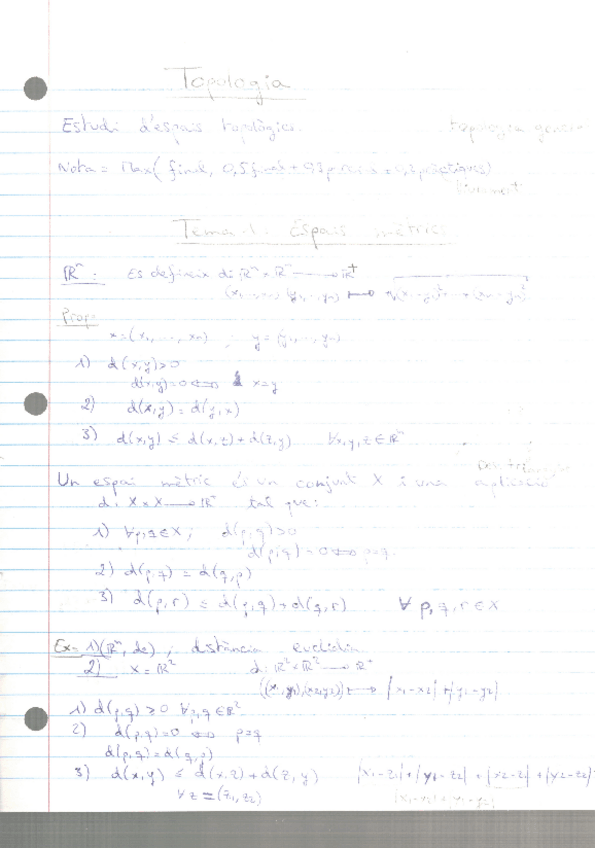 Topologia
Estudi d'espais topològics. topologia general
Nota = Max( final, 0,5 final + 0,3 parcial + 0,2 pràctiques)
lliurament
Tema-1: Espais mètrics
ℝⁿ: Es defineix d: ℝⁿ × ℝⁿ ⟶ ℝ⁺
(x₁, ..., xₙ) (y₁, ..., yₙ) ⟼ √(x₁-y₁)² + ... + (xₙ-yₙ)²
Prop:
x = (x₁, ..., xₙ) ; y = (y₁, ..., yₙ)
1) d(x,y) ≥ 0
d(x,y) = 0 ⟺ x = y
2) d(x,y) = d(y,x)
3) d(x,y) ≤ d(x,z) + d(z,y) ∀x,y,z ∈ ℝⁿ
Un espai mètric és un conjunt X i una aplicació
d: X × X ⟶ ℝ⁺ tal que:
1) ∀p,q ∈ X ; d(p,q) ≥ 0
d(p,q) = 0 ⟺ p=q.
2) d(p,q) = d(q,p)
3) d(p,r) ≤ d(p,q) + d(q,r) ∀ p,q,r ∈ X
Ex- 1) (ℝⁿ, de) ; distància euclidia
2) X = ℝ² d: ℝ² × ℝ² ⟶ ℝ⁺
((x₁,y₁),(x₂,y₂)) ⟼ |x₁-x₂| + |y₁-y₂|
1) d(p,q) ≥ 0 ∀p,q ∈ ℝ²
2) d(p,q) = 0 ⟺ p=q
d(p,q) = d(q,p)
3) d(x,y) ≤ d(x,z) + d(z,y) |x₁-z₁| + |y₁-z₂| + |x₂-z₁| + |y₂-z₂|
∀z = (z₁,z₂) |x₁-x₂| + |y₁-y₂|